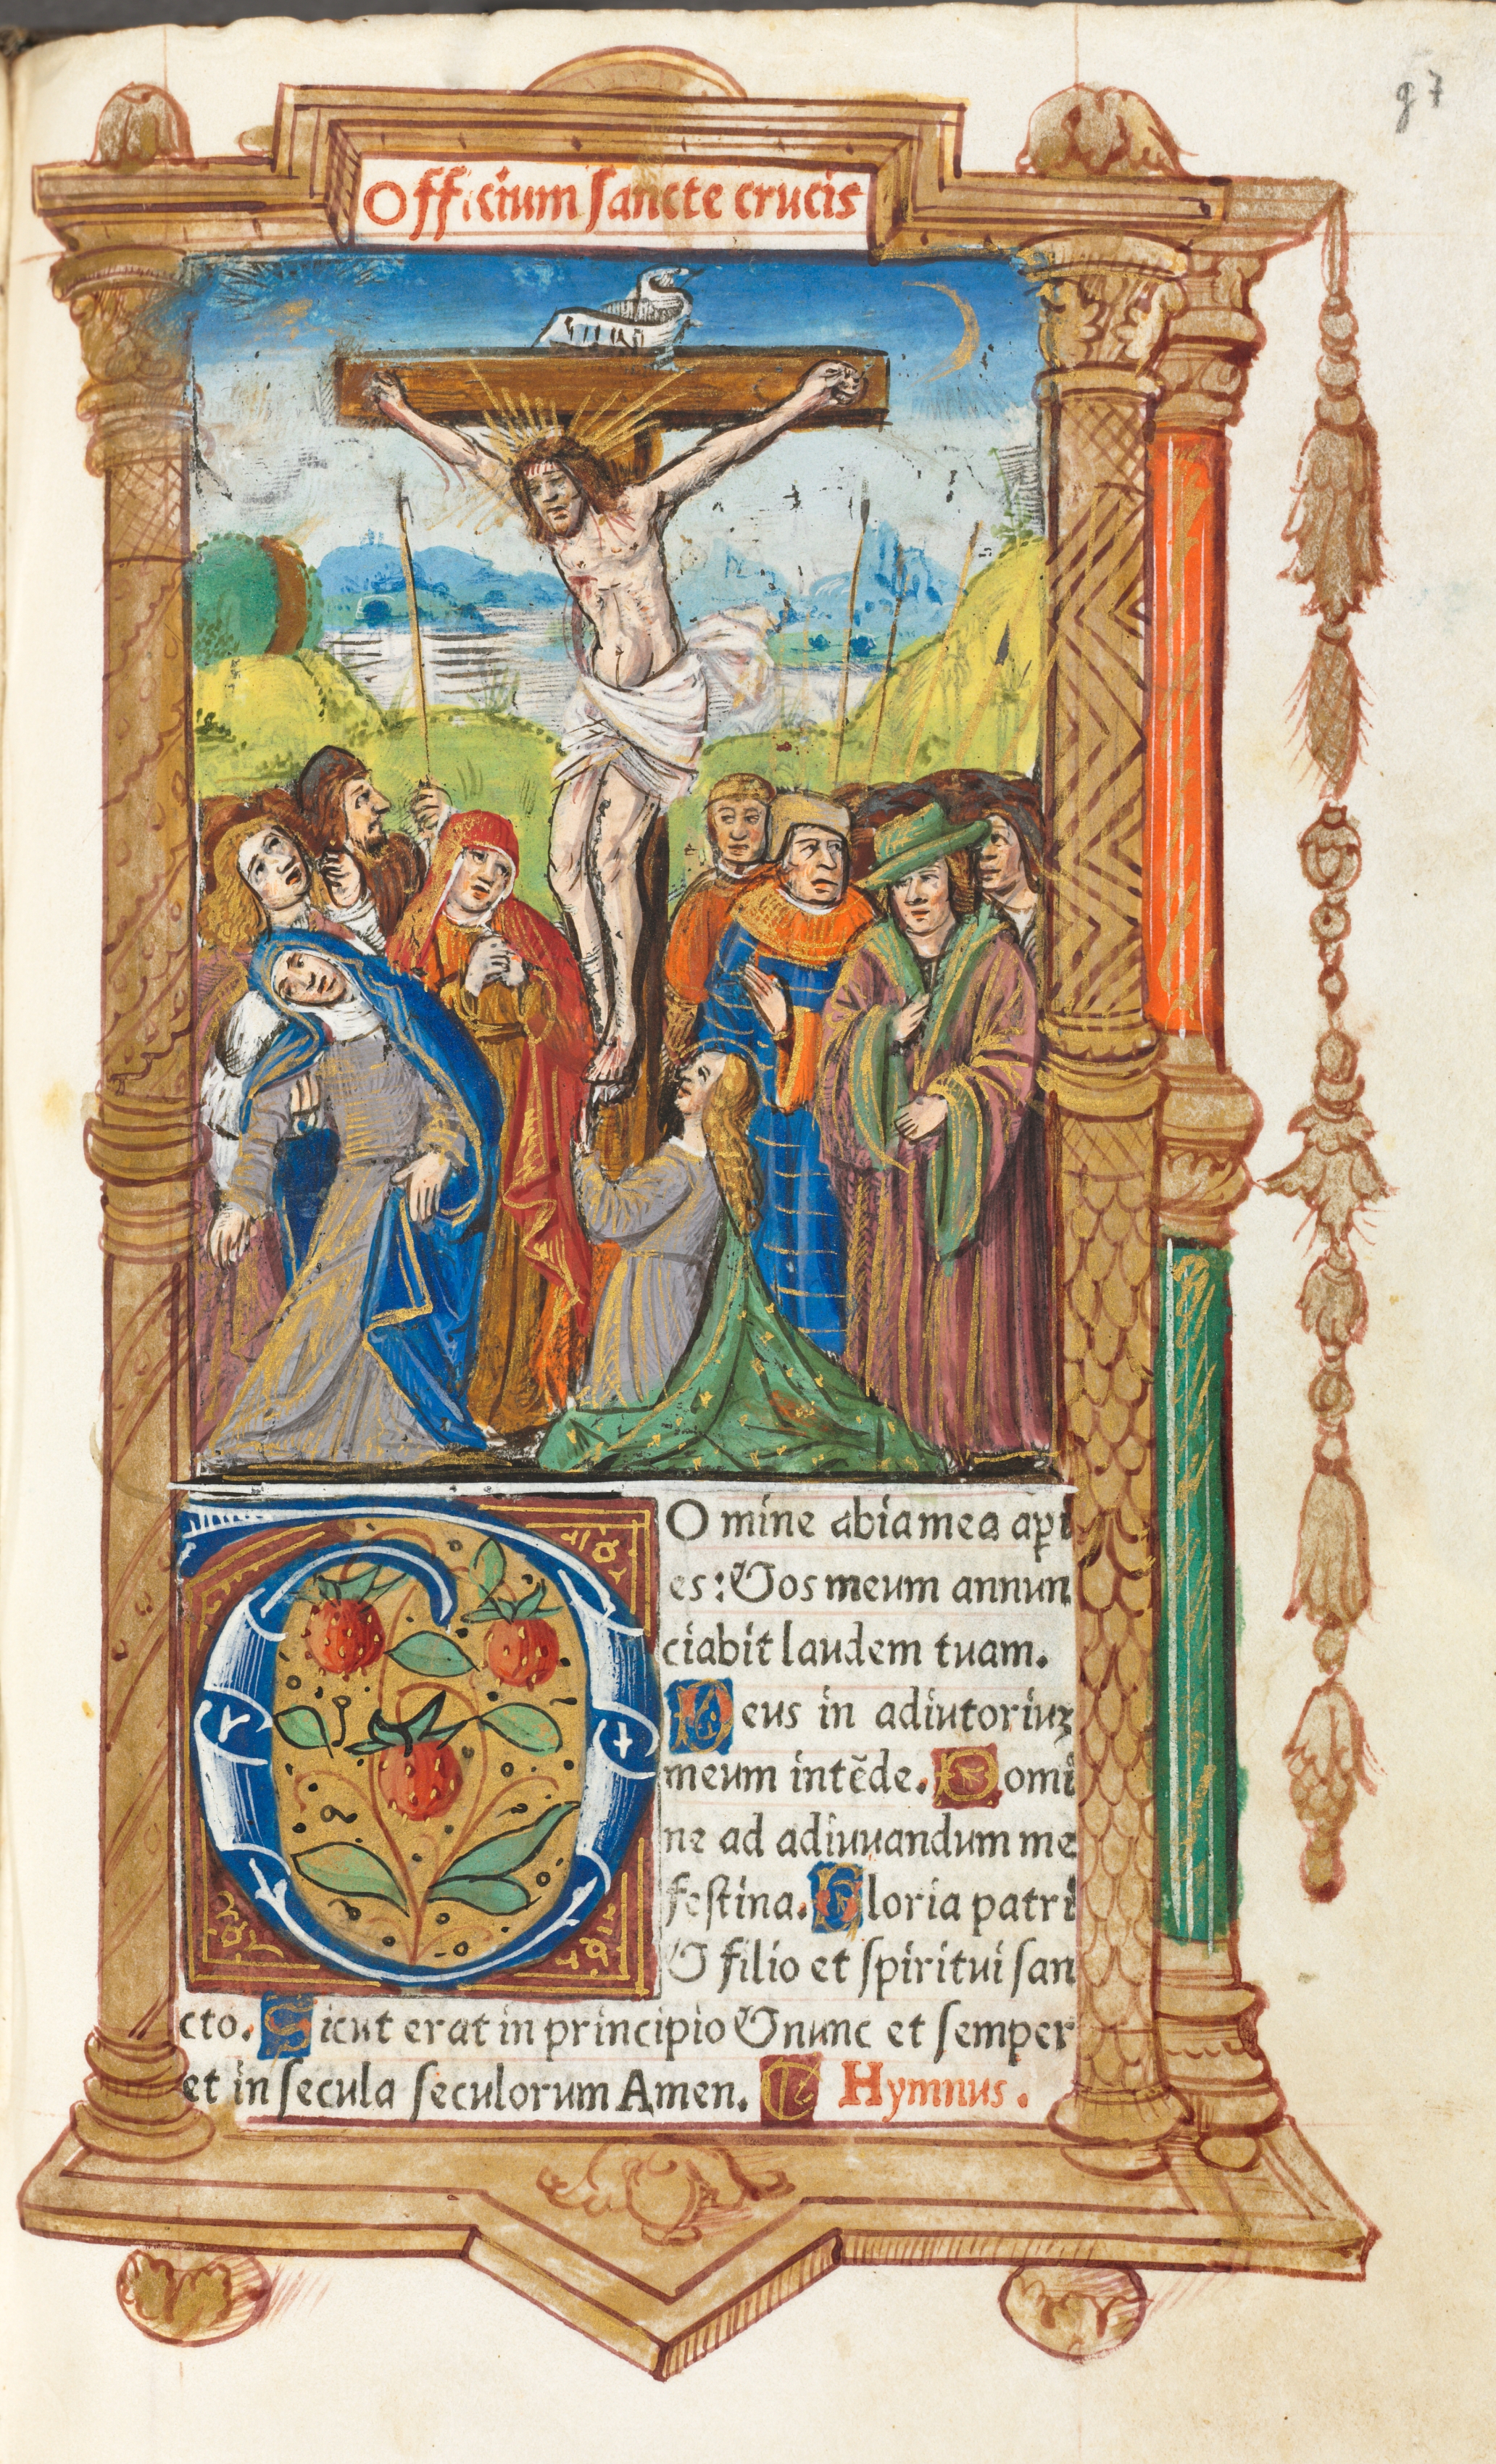 g7
Officium sancte crucis
Domine labia mea aperi
es: & os meum annun
ciabit laudem tuam.
Deus in adiutoriuꝫ
meum intēde. Domi
ne ad adiuuandum me
festina. Gloria patri
& filio et spiritui san
cto. Sicut erat in principio & nunc et semper
et in secula seculorum Amen. Hymnus.